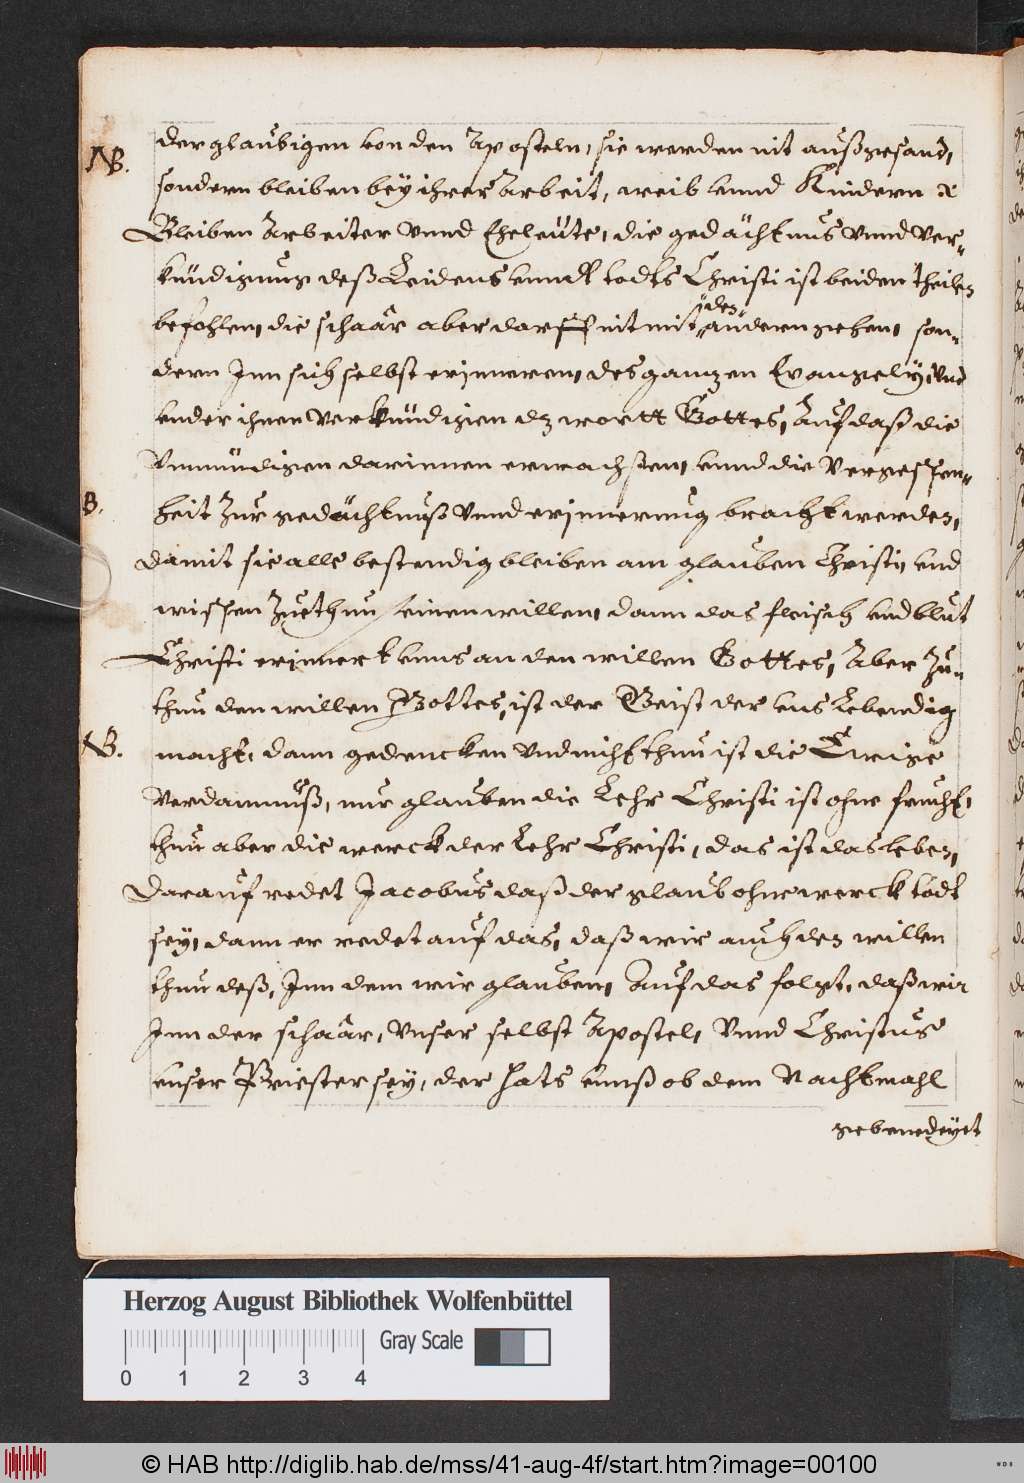 der glaubigen von den Aposteln, sie werden nit außgesand,
NB.
sondern bleiben bey ihrer Arbeit, weib vnnd Kindern &
Bleiben Arbeiter Vnnd Eheleüte, die gedächtnus Vnnd Ver-
kündigung deß Leidens vnndt todts Christi ist beiden theilen
befohlen, die schaar aber darff nit mit den andern gehen, son-
dern Inn sich selbst erinneren, des ganzen Evangelij, Vnd
vnder ihnen Verkündigen dz wortt Gottes, Auf daß die
Vnmündigen darinnen erwachsen, vnnd die Vergessen-
B.
heit Zur gedächtnuß Vnnd erinnerung bracht werden,
damit sie alle bestendig bleiben am glauben Christi, vnd
wissen Zuethun seinen willen, dann das fleisch vnd blut
Christi erinnert vnns an den willen Gottes, Aber Zu-
thun den willen Gottes, ist der Geist der vns Lebendig
NB.
macht, dann gedencken Vnd nicht thun ist die Ewige
Verdamnuß, nur glauben die Lehr Christi ist ohne frucht,
thun aber die werck der Lehr Christi, das ist das leben,
Darauf redet Jacobus daß der glaub ohne werck todt
sey, dann er redet auf das, daß wir auch den willen
thun deß, Inn dem wir glauben, Auf das folgt, daß wir
Inn der schaar, Vnser selbst Apostel, Vnnd Christus
vnser Priester sey, der hats vnnß ob dem Nachtmahl
gebenedeyet
Herzog August Bibliothek Wolfenbüttel
Gray Scale
0 1 2 3 4
© HAB http://diglib.hab.de/mss/41-aug-4f/start.htm?image=00100